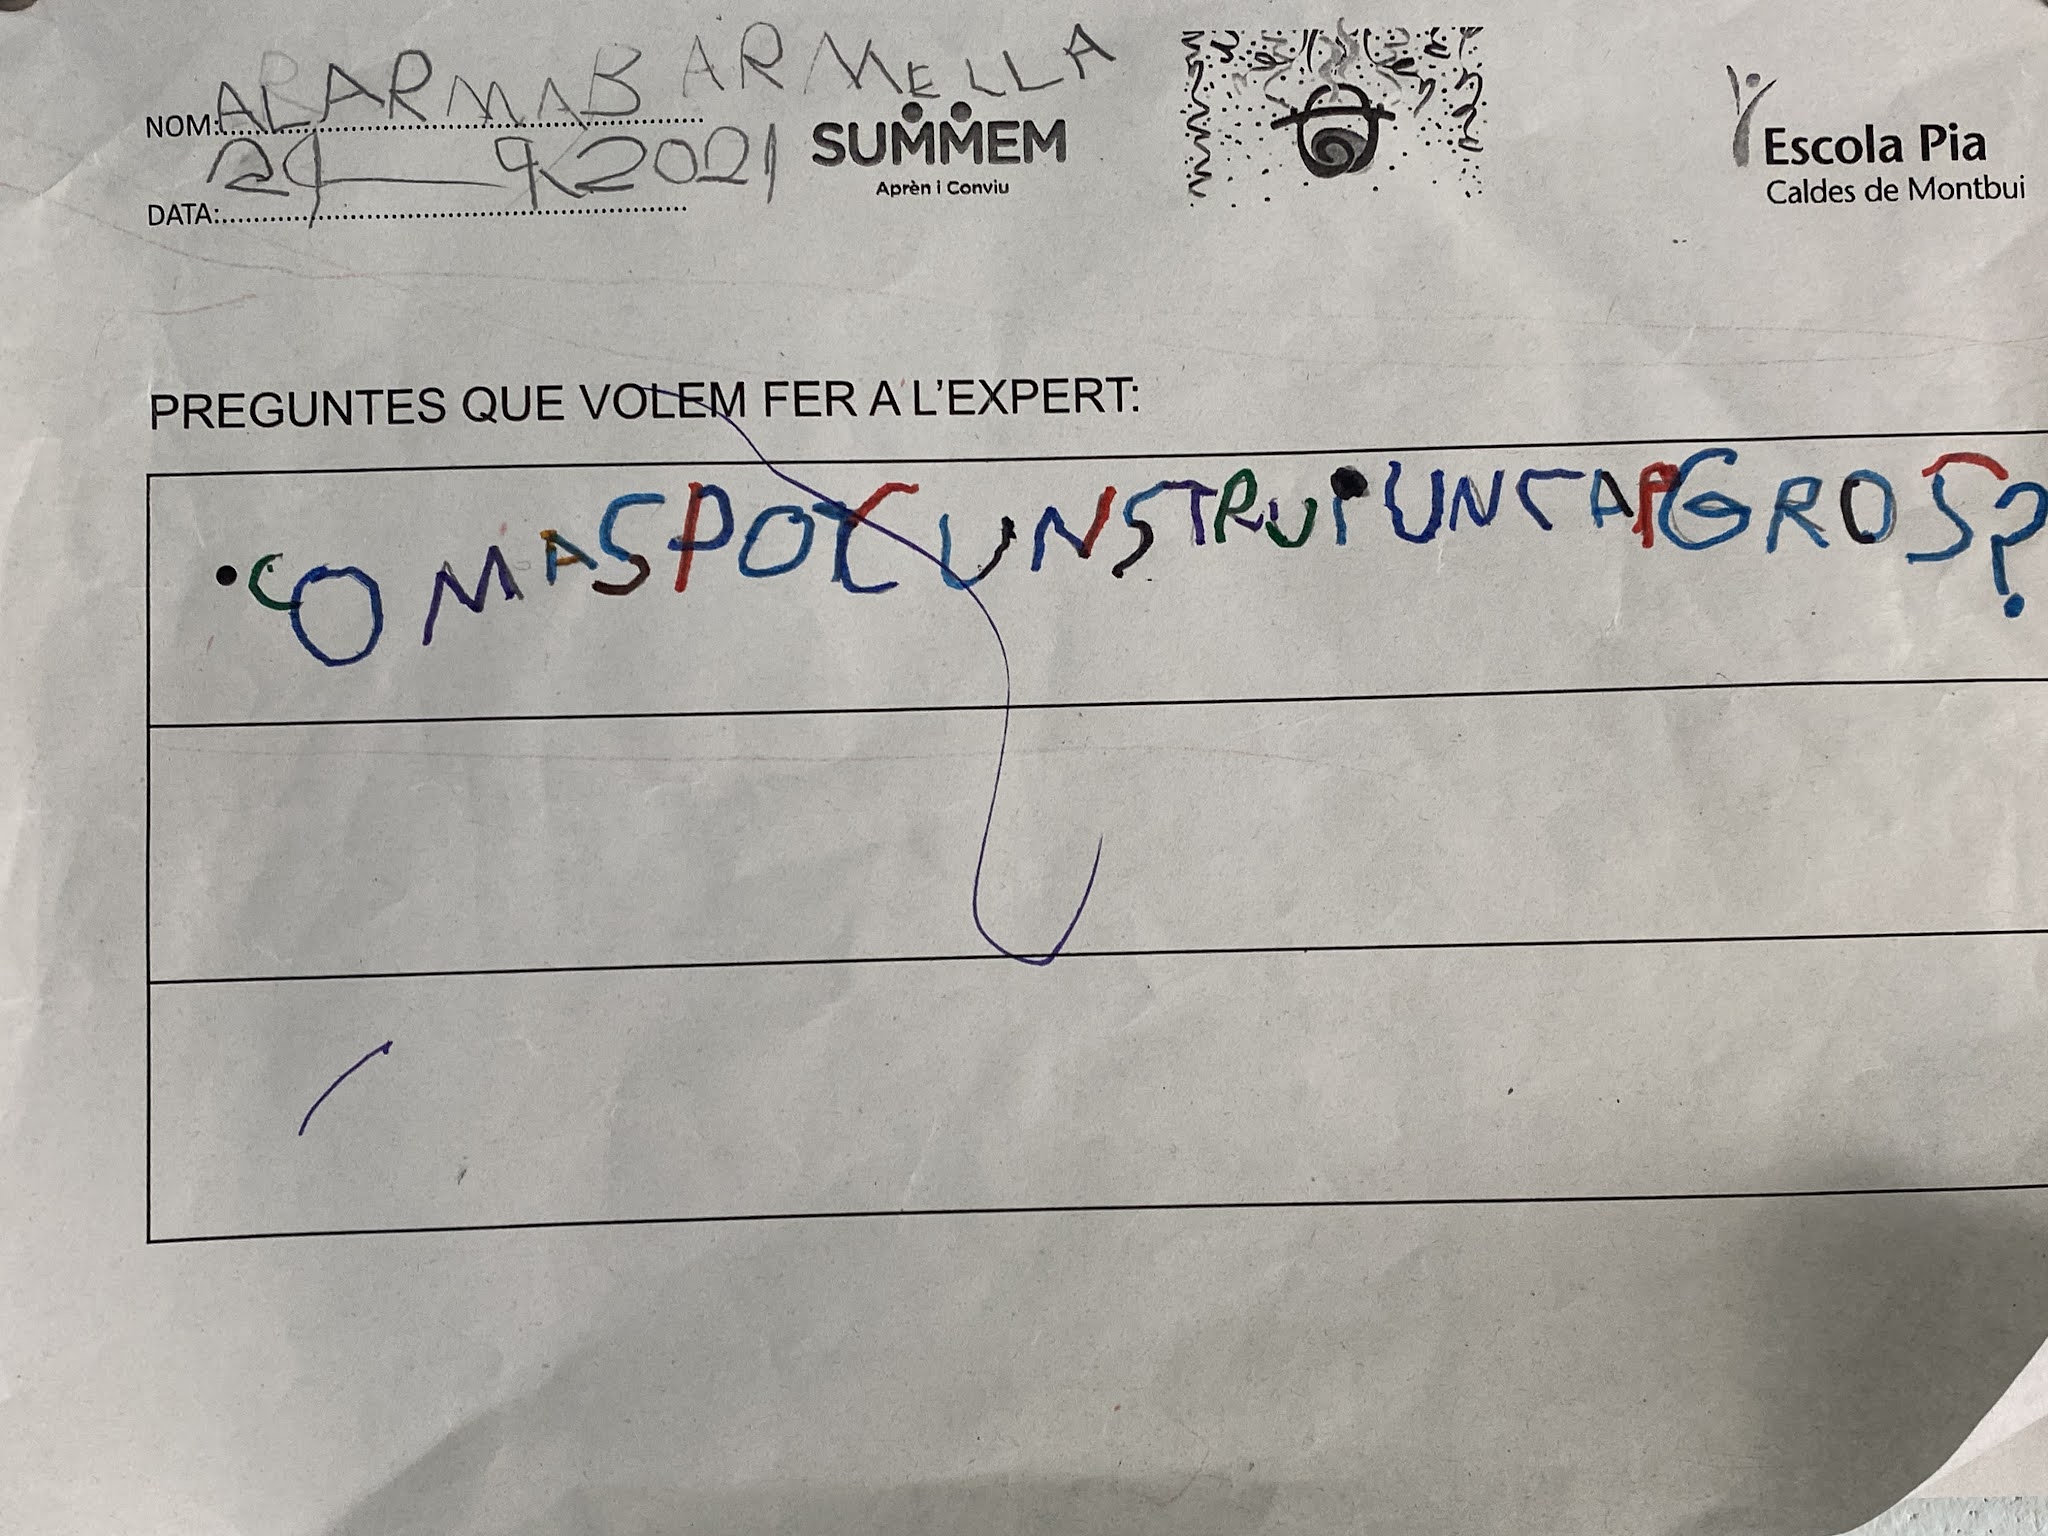 NOM: ALAR MAB ARMELLA
SUMMEM
Aprèn i Conviu
Escola Pia
Caldes de Montbui
DATA: 29 9 2021
PREGUNTES QUE VOLEM FER A L'EXPERT:
•COM AS POT CUNSTRUI UN CAP GROS?